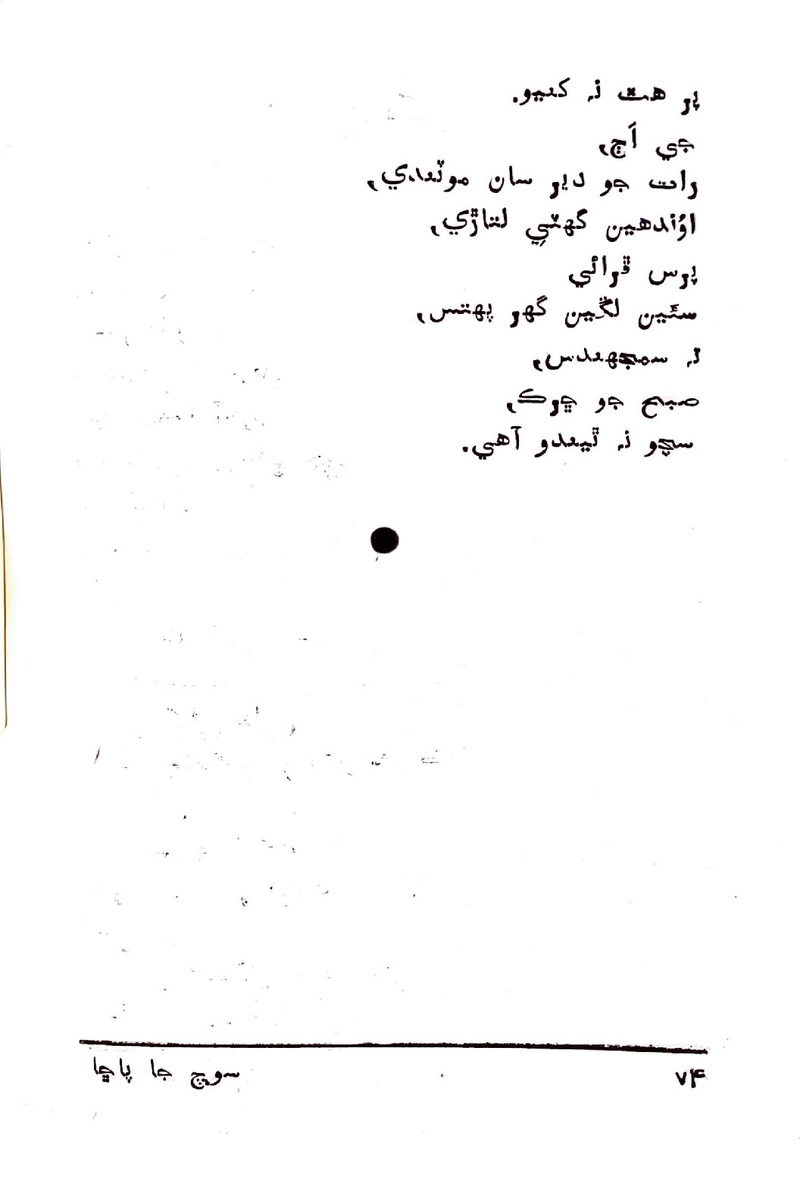 پر هٿ نہ کنيو.
جي اَڄ،
رات جو دير سان موٽندي،
اوُندهين گهٽيِ لتاڙي،
پرس ڦرائي
سٿين لڱين گهر پهتس،
تہ سمجهندس،
صبح جو ڇرڪ،
سچو نہ ٿيندو آهي.
۷۴
سوچ جا پاڇا